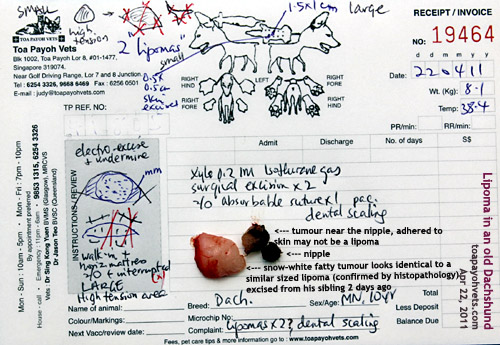 small
high tension
TOA PAYOH VETS
Toa Payoh Vets
Blk 1002, Toa Payoh Lor 8, #01-1477,
Singapore 319074.
Near Golf Driving Range, Lor 7 and 8 Junction
Tel : 6254 3326, 9668 6469 Fax : 6256 0501
E-mail : judy@toapayohvets.com
2 lipomas
small
0.5x
0.5cm
skin
excised
1.5x1cm large
LEFT
RIGHT HIND
RIGHT FORE
RIGHT HIND
RIGHT FORE
RECEIPT / INVOICE
NO: 19464
Date: 22.4.11
Wt. (Kg): 8.1
Temp: 38.4
PR/min: RR/min:
TP REF. NO.:
Admit Discharge No. of days S$
By appointment preferred
Mon - Sun : 2pm - 5pm, Mon - Fri: 7pm - 10pm
House - call • Emergency : 11pm - 6am : 9853 1315, 6254 3326
Vets : Dr Sing Kong Yuan BVMS (Glasgow), MRCVS
Dr Jason Teo BVSC (Queensland)
INSTRUCTIONS / REVIEW
electro-excise
+ undermine
mm
walk-in
horiz mattress
interrupted
LARGE
High tension area
xyla 0.2 ml Isoflurane gas
surgical excision x2
absorbable suture x1 pac.
dental scaling
<--- tumour near the nipple, adhered to
skin may not be a lipoma
<--- nipple
<--- snow-white fatty tumour looks identical to
a similar sized lipoma (confirmed by histopathology)
excised from his sibling 2 days ago
Name of animal:
Breed: Dach. Sex/Age: MN, 10yr
Less Deposit
Colour/Markings: Microchip No.:
Balance Due
Next Vacc/review date: Complaint: lipomas x2? dental scaling
Fees, pet care tips & more information go to : www.toapayohvets.com
Lipoma in an old Dachshund
toapayohvets.com
Apr 22, 2011